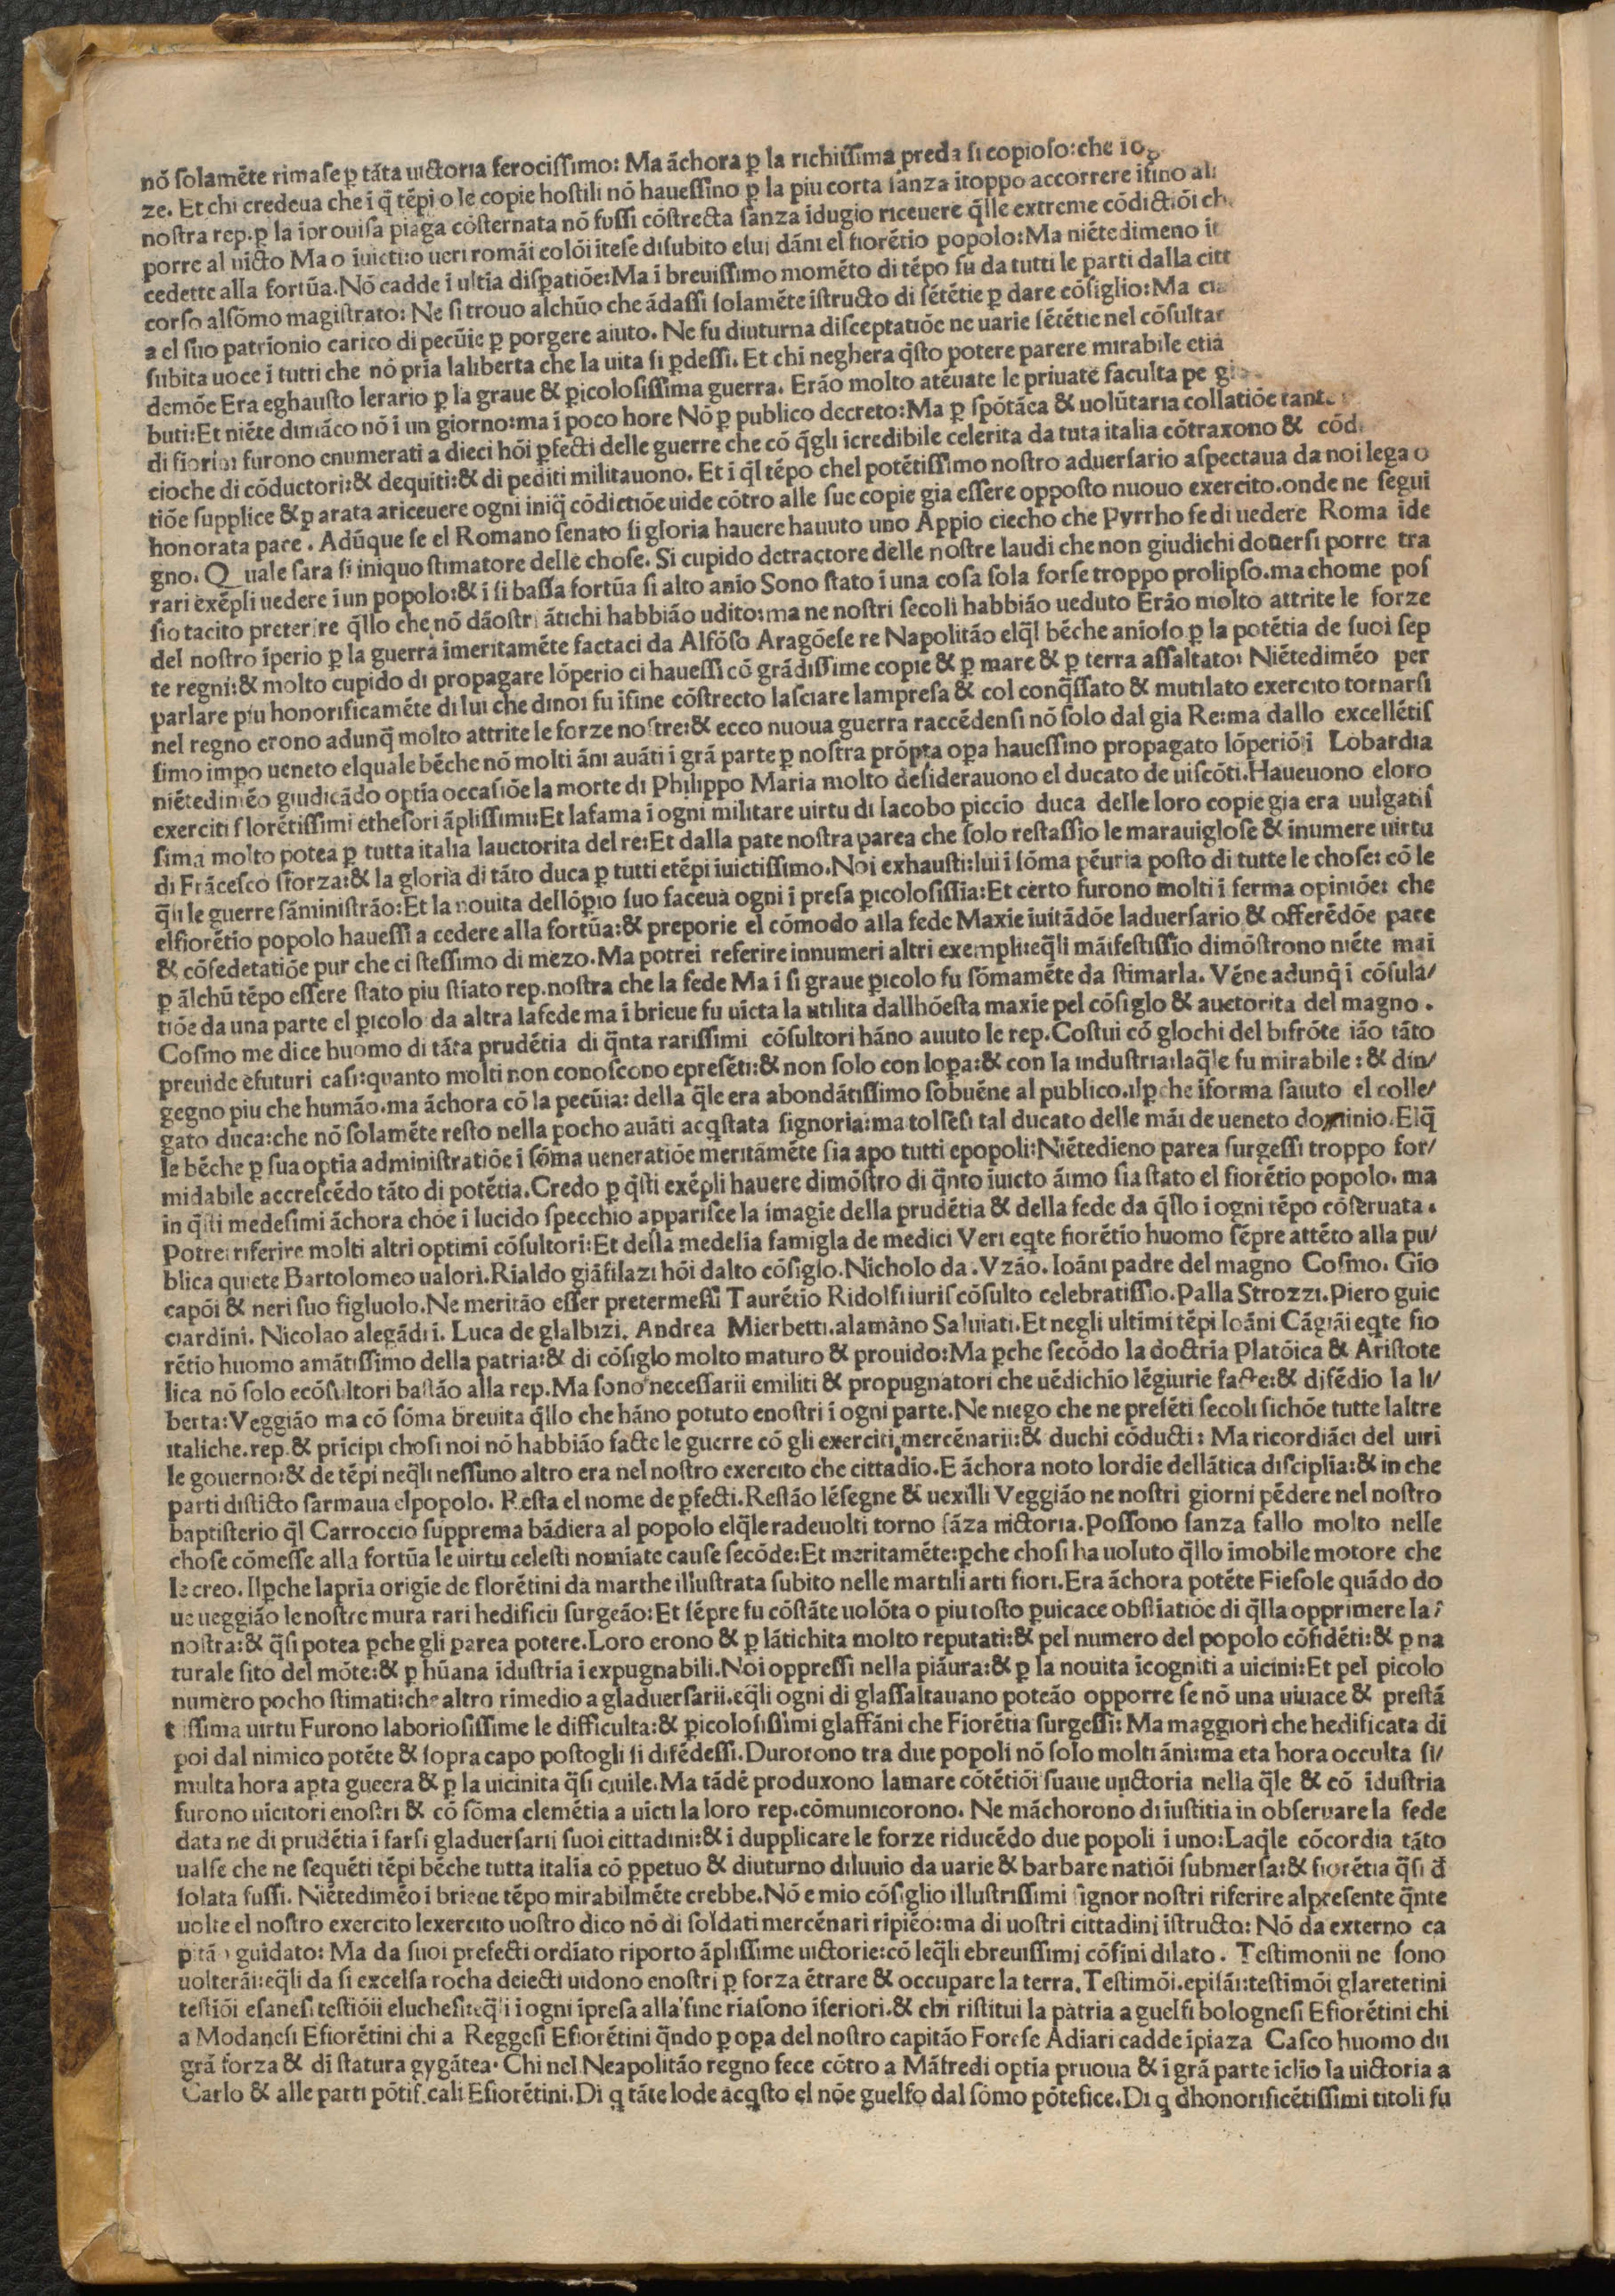 nõ ſolamẽte rimaſe ꝑ tãta uictoria ferociſſimo: Ma ãchora ꝑ la richiſſima preda ſi copioſo:che iog
ze. Et chi credeua che ĩ q̃ tẽpi o le copie hoſtili nõ haueſſino ꝑ la piu corta ſãza ĩtoppo accorrere iſino ali
noſtra rep.ꝑ la iprouiſa piaga cõſternata nõ fuſſi cõſtrecta ſanza ĩdugio riceuere q̃lle extreme cõdictiõi ch
porre al uicto Ma o ĩuicti:o ueri romãi colõi iteſe diſubito eſui dãni el fiorẽtio popolo:Ma niẽtedimeno it
cedette alla fortũa.Nõ cadde ĩ ultĩa diſpatiõe:Ma ĩ breuiſſimo momẽto di tẽpo fu da tutti le parti dalla citt
corſo alſõmo magiſtrato: Ne ſi trouo alchũo che ãdaſſi ſolamẽte iſtructo di ſẽtẽtie ꝑ dare cõſiglio:Ma cia
a el ſuo patrĩonio carico di pecũie ꝑ porgere aiuto. Ne fu diuturna diſceptatiõe ne uarie ſẽtẽtie nel cõſultar
ſubita uoce ĩ tutti che nõ prĩa laliberta che la uita ſi ꝑdeſſi. Et chi neghera q̃ſto potere parere mirabile etiã
demõe Era eghauſto lerario ꝑ la graue & ꝑicoloſiſſima guerra. Erão molto atẽuate le priuate faculta pe g
buti:Et niẽte dimãco nõ ĩ un giorno:ma ĩ poco hore Nõ ꝑ publico decreto:Ma ꝑ ſpõtãea & uolũtaria collatiõe tante
di fiorini furono enumerati a dieci hõi ꝑfecti delle guerre che cõ q̃gli icredibile celerita da tuta italia cõtraxono & cõd
cioche di cõductori:& dequiti:& di pediti militauono. Et ĩ q̃l tẽpo chel potẽtiſſimo noſtro aduerſario aſpectaua da noi lega o
tiõe ſupplice & ꝑarata ariceuere ogni iniq̃ cõdictiõe uide cõtro alle ſue copie gia eſſere oppoſto nuouo exercito.onde ne ſegui
honorata pace. Adũque ſe el Romano ſenato ſi gloria hauere hauuto uno Appio ciecho che Pyrrho ſe di uedere Roma ide
gno. Quale ſara ſi iniquo ſtimatore delle choſe. Si cupido detractore delle noſtre laudi che non giudichi douerſi porre tra
rari exẽpli uedere ĩ un popolo:& ĩ ſi baſſa fortũa ſi alto anio Sono ſtato ĩ una coſa ſola forſe troppo prolipſo.ma chome poſ
ſio tacito preterire q̃llo che nõ dãoſtri ãtichi habbião udito:ma ne noſtri ſecoli habbião ueduto Erão molto attrite le forze
del noſtro ĩperio ꝑ la guerra ĩmeritamẽte factaci da Alfõſo Aragõeſe re Napolitão elq̃l bẽche anioſo ꝑ la potẽtia de ſuoi ſep
te regni:& molto cupido di propagare lõperio ci haueſſi cõ grãdiſſime copie & ꝑ mare & ꝑ terra aſſaltato: Niẽtedimẽo per
parlare piu honorificamẽte di lui che dinoi fu ĩfine cõſtrecto laſciare lampreſa & col conq̃ſſato & mutilato exercito tornarſi
nel regno erono adunq̃ molto attrite le forze noſtre:& ecco nuoua guerra raccẽdenſi nõ ſolo dal gia Re:ma dallo excellẽtiſ
ſimo impo ueneto elquale bẽche nõ molti ãni auãti ĩ grã parte ꝑ noſtra prõpta oꝑa haueſſino propagato lõperiõ ĩ Lobardia
niẽtedimẽo giudicãdo optĩa occaſiõe la morte di Philippo Maria molto deſiderauono el ducato de uiſcõti.Haueuono eloro
exerciti florẽtiſſimi etheſori ãpliſſimi:Et lafama ĩ ogni militare uirtu di Iacobo piccio duca delle loro copie gia era uulgatiſ
ſima molto potea ꝑ tutta italia lauctorita del re:Et dalla pate noſtra parea che ſolo reſtaſſio le marauigloſe & inumere uirtu
di Frãceſco ſforza:& la gloria di tãto duca ꝑ tutti etẽpi ĩuictiſſimo.Noi exhauſti:lui ĩ ſõma pẽuria poſto di tutte le choſe: cõ le
q̃li le guerre ſãminiſtrão:Et la nouita dellõpio ſuo faceua ogni ĩ preſa ꝑicoloſiſſia:Et certo furono molti ĩ ferma opiniõe: che
elfiorẽtio popolo haueſſi a cedere alla fortũa:& preporie el cõmodo alla fede Maxie iuitãdõe laduerſario & offerẽdõe pace
& cõfedetatiõe pur che ci ſteſſimo di mezo. Ma potrei referire innumeri altri exempli:eq̃li mãifeſtiſſio dimõſtrono niẽte mai
ꝑ ãlchũ tẽpo eſſere ſtato piu ſtĩato rep.noſtra che la fede Ma ĩ ſi graue ꝑicolo fu ſõmamẽte da ſtimarla. Vẽne adunq̃ ĩ cõſula/
tiõe da una parte el ꝑicolo da altra lafede ma ĩ brieue fu uicta la utilita dallhõeſta maxie pel cõſiglo & auctorita del magno.
Coſmo me dice huomo di tãta prudẽtia di q̃nta rariſſimi cõſultori hãno auuto le rep.Coſtui cõ glochi del bifrõte ião tãto
preuide efuturi caſi:quanto molti non conoſcono epreſẽti:& non ſolo con loꝑa:& con la induſtria:laq̃le fu mirabile: & din/
gegno piu che humão.ma ãchora cõ la pecũia: della q̃le era abondãtiſſimo ſobuẽne al publico.ilꝑche ĩforma ſaiuto el colle/
gato duca:che nõ ſolamẽte reſto nella pocho auãti acq̃ſtata ſignoria:ma tolſeſi tal ducato delle mãi de ueneto dominio.Elq̃
le bẽche ꝑ ſua optia adminiſtratiõe ĩ ſõma ueneratiõe meritãmẽte ſia apo tutti epopoli:Niẽtedieno parea ſurgeſſi troppo for/
midabile accreſcẽdo tãto di potẽtia.Credo ꝑ q̃ſti exẽpli hauere dimõſtro di q̃nto iuicto ãimo ſia ſtato el fiorẽtio popolo. ma
in q̃ſti medeſimi ãchora chõe ĩ lucido ſpecchio appariſce la imagie della prudẽtia & della fede da q̃llo ĩ ogni tẽpo cõſeruata.
Potrei riferire molti altri optimi cõſultori:Et della medeſia famigla de medici Veri eq̃te fiorẽtio huomo ſẽpre attẽto alla pu/
blica quiete Bartolomeo ualori.Rialdo giãfilazi hõi dalto cõſiglo.Nicholo da.Vzão.Ioãni padre del magno Coſmo. Gio
capõi & neri ſuo figluolo.Ne meritão eſſer pretermeſſi Taurẽtio Ridolfi iuriſcõſulto celebratiſſio.Palla Strozzi.Piero guic
ciardini. Nicolao alegãdri. Luca de glalbizi. Andrea Mierbetti.alamãno Saluiati.Et negli ultimi tẽpi Ioãni Cãgiãi eq̃te fio
rẽtio huomo amãtiſſimo della patria:& di cõſiglo molto maturo & prouido:Ma ꝑche ſecõdo la doctrĩa Platõica & Ariſtote
lica nõ ſolo ecõſultori baſtão alla rep.Ma ſono neceſſarii emiliti & propugnatori che uẽdichĩo lẽgiurie facte:& difẽdĩo la li/
berta:Veggião ma cõ ſõma breuita q̃llo che hãno potuto enoſtri ĩ ogni parte.Ne niego che ne preſẽti ſecoli ſichõe tutte laltre
italiche.rep.& prĩcipi choſi noi nõ habbião facte le guerre cõ gli exerciti mercẽnarii:& duchi cõducti: Ma ricordiãci del uiri
le gouerno:& de tẽpi neq̃li neſſuno altro era nel noſtro exercito che cittadĩo.E ãchora noto lordĩe dellãtica diſciplĩa:& in che
parti diſticto ſarmaua elpopolo. Reſta el nome de ꝑfecti.Reſtão lẽſegne & uexilli Veggião ne noſtri giorni pẽdere nel noſtro
baptiſterio q̃l Carroccio ſupprema bãdiera al popolo elq̃le radeuolti torno ſãza uictoria.Poſſono ſanza fallo molto nelle
choſe cõmeſſe alla fortũa le uirtu celeſti nomĩate cauſe ſecõde:Et meritamẽte:ꝑche choſi ha uoluto q̃llo ĩmobile motore che
le creo. Ilꝑche laprĩa origĩe de florẽtini da marthe illuſtrata ſubito nelle martili arti fiori.Era ãchora potẽte Fieſole quãdo do
ue ueggião le noſtre mura rari hedificii ſurgeão:Et ſẽpre fu cõſtãte uolõta o piu toſto ꝑuicace obſtĩatiõe di q̃lla opprimere la ĩ
noſtra:& q̃ſi potea ꝑche gli parea potere.Loro erono & ꝑ lãtichita molto reputati:& pel numero del popolo cõfidẽti:& ꝑ na
turale ſito del mõte:& ꝑ hũana ĩduſtria ĩexpugnabili.Noi oppreſſi nella piãura:& ꝑ la nouita ĩcogniti a uicini:Et pel picolo
numero pocho ſtimati:che altro rimedio a gladuerſarii.eq̃li ogni di glaſſaltauano poteão opporre ſe nõ una uiuace & preſtã
tiſſima uirtu Furono laborioſiſſime le difficulta:& ꝑicoloſiſſimi glaffãni che Fiorẽtia ſurgeſſi: Ma maggiori che hedificata di
poi dal nimico potẽte & ſopra capo poſtogli ſi difẽdeſſi.Durorono tra due popoli nõ ſolo molti ãni:ma eta hora occulta ſi/
multa hora aꝑta gueera & ꝑ la uicinita q̃ſi ciuile.Ma tãdẽ produxono lamare cõtẽtiõi ſuaue uictoria nella q̃le & cõ ĩduſtria
furono uicitori enoſtri & cõ ſõma clemẽtia a uicti la loro rep.cõmunicorono. Ne mãchorono di iuſtitia in obſeruare la fede
data ne di prudẽtia ĩ farſi gladuerſarii ſuoi cittadini:& ĩ dupplicare le forze riducẽdo due popoli ĩ uno:Laq̃le cõcordia tãto
ualſe che ne ſequẽti tẽpi bẽche tutta italia cõ ꝑpetuo & diuturno diluuio da uarie & barbare natiõi ſubmerſa:& fiorẽtia q̃ſi d̃
ſolata fuſſi. Niẽtedimẽo ĩ brieue tẽpo mirabilmẽte crebbe.Nõ e mio cõſiglio illuſtriſſimi ſignor noſtri riferire alpreſente q̃nte
uolte el noſtro exercito lexercito uoſtro dico nõ di ſoldati mercẽnari ripiẽo:ma di uoſtri cittadini ĩſtructo: Nõ da externo ca
pitão guidato: Ma da ſuoi prefecti ordĩato riporto ãpliſſime uictorie:cõ leq̃li ebreuiſſimi cõfini dilato. Teſtimonii ne ſono
uolterãi:eq̃li da ſi excelſa rocha deiecti uidono enoſtri ꝑ forza ẽtrare & occupare la terra.Teſtimõi.epiſãi:teſtimõi glaretetini
teſtiõi eſaneſi teſtiõii elucheſi:eq̃li ĩ ogni ĩpreſa alla fine riaſono ĩferiori.& chi riſtitui la patria a guelfi bologneſi Efiorẽtini chi
a Modaneſi Efiorẽtini chi a Reggeſi Efiorẽtini q̃ndo ꝑ oꝑa del noſtro capitão Foreſe Adiari cadde ĩpiaza Caſco huomo du
grã forza & di ſtatura gygãtea. Chi nel Neapolitão regno fece cõtro a Mãfredi optĩa pruoua & ĩ grã parte ĩclĩo la uictoria a
Carlo & alle parti põtificali Efiorẽtini.Di q̃ tãte lode acq̃ſto el nõe guelfo dal ſõmo põtefice.Di q̃ dhonorificẽtiſſimi titoli fu